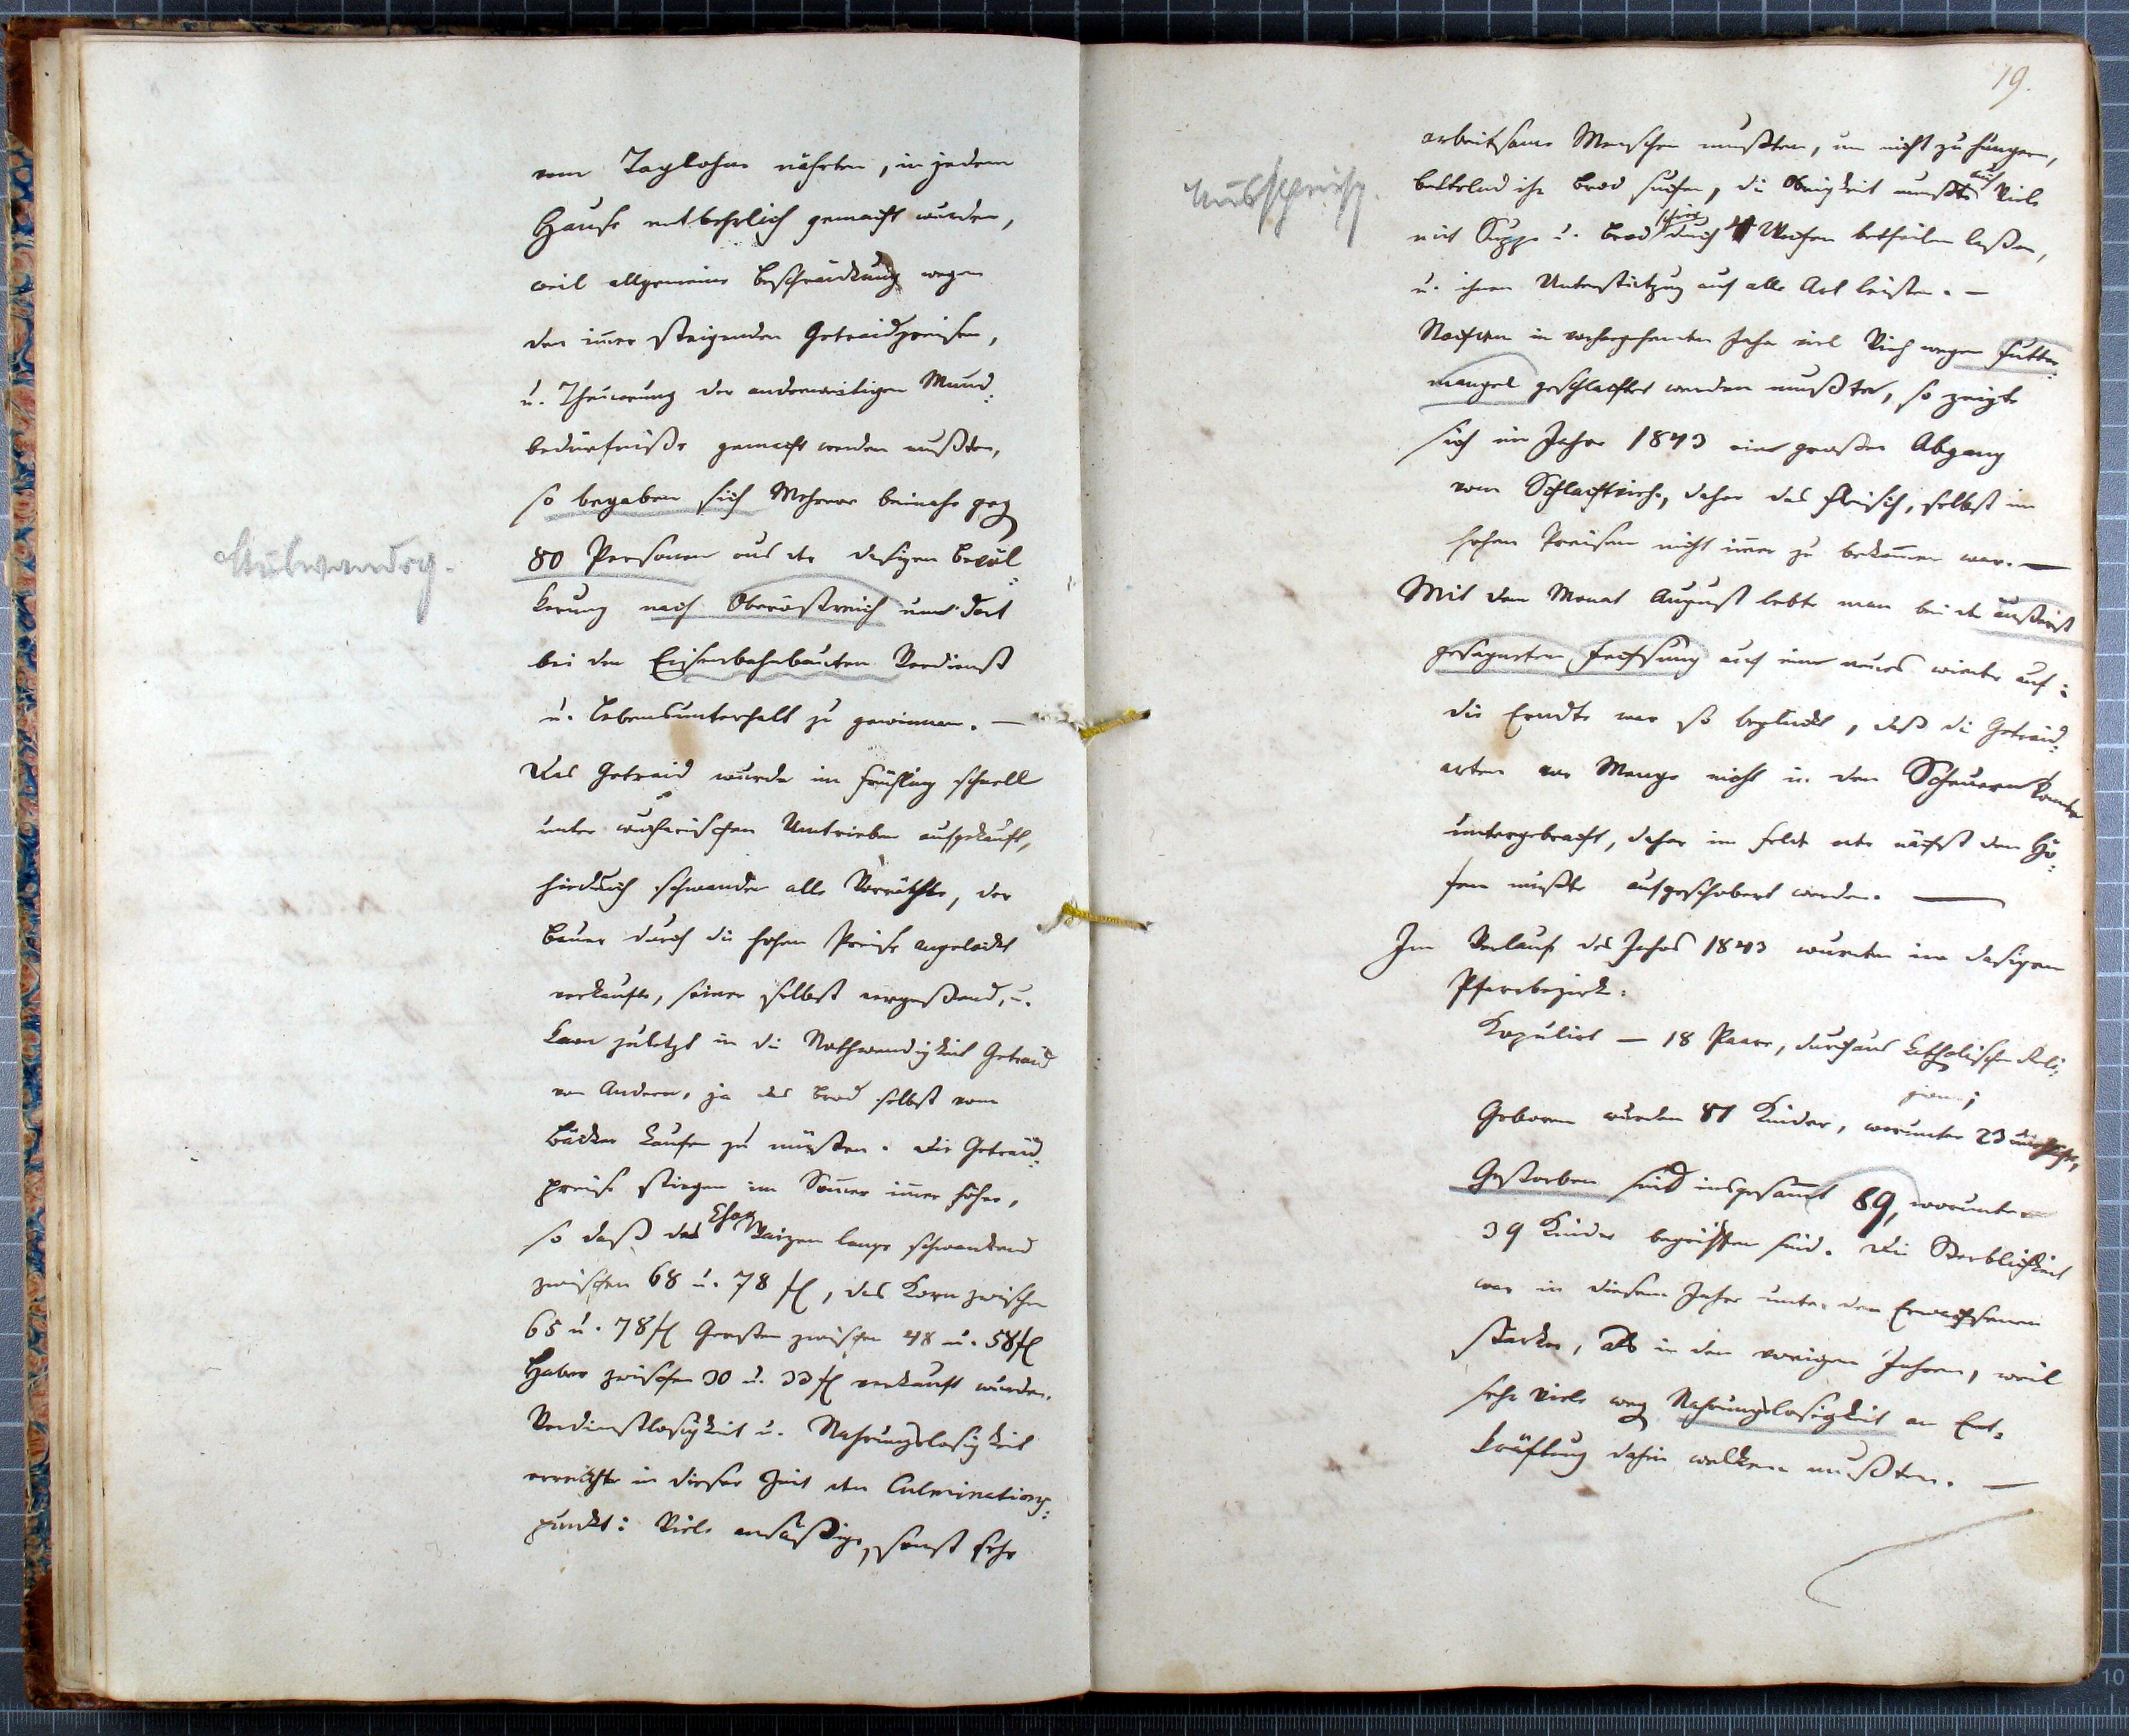 vom Taglohne nährten, in jedem
Hause entbehrlich gemacht wurden,
weil allgemeine Beschränkung wegen
den im̅er steigenden Getraidpreisen,
u. Theuerung der anderweitigen Mund-
bedürfniße gemacht werden mußten,
so begaben sich Mehrere beinahe geg
80 Personen aus der dasigen Bevöl-
kerung nach Oberöstreich um dort
Auswandrg.
bei den Eisenbahnbauten Verdienst
u. Lebensunterhalt zu gewinnen. —
Das Getraid wurde im Frühling schnell
unter wucherischen Umtrieben aufgekauft,
hiedurch schwanden alle Vorräthe, der
Bauer durch die hohen Preise angelockt
verkaufte, seiner selbst vergeßend, u.
kam zuletzt in die Nothwendigkeit Getraid
von Andern, ja das Brod selbst vom
Bäcker kaufen zu müßten. Die Getraid-
preise stiegen im Som̅er im̅er höher,
so daß das Waizen lange schwankend
zwischen 68 u. 78 fl, das Korn zwischen
65 u. 78 fl Gersten zwischen 48 u. 58 fl
Haber zwischen 30 u. 33 fl verkauft wurden.
Verdienstlosigkeit u. Nahrungslosigkeit
erreichte in dieser Zeit den Culminations-
punkt: Viele ansäßige, sonst sehr
19.
arbeitsame Menschen mußten, um nicht zu hungern,
bettelnd ihr Brod suchen, die Obrigkeit mußte auch Viele
mit Suppe u. Brod durch 4 Wochen betheilen laßen,
u. ihnen Unterstützung auf alle Art leisten. —
Nachdem im vorhergehenden Jahre viel Vieh wegen Futter-
mangel geschlachtet werden mußte, so zeigte
sich im Jahre 1843 ein großer Abgang
vom Schlachtvieh, daher das Fleisch, selbst im
hohen Preisen nicht im̅er zu bekom̅en war. —
Mit dem Monat August lebte man bei der äußerst
gesegneten Fechsung auf ein neues wieder auf:
die Erndte war so beglückt, daß die Getraid-
arten vor Menge nicht in den Scheuern konnten
untergebracht, daher im Felde oder nächst den Hö-
fen mußte aufgeschobert werden. —
Im Verlauf des Jahres 1843 wurden im dasigen
Pfarrbezirk:
Kopulirt — 18 Paare, durchaus katholischer Reli-
gion;
Geboren wurden 81 Kinder, worunter 23
Gestorben sind insgesam̅t 89, worunter
39 Kinder begriffen sind. Die Sterblichkeit
war in diesem Jahre unter den Erwachsenen
stärker, als in den vorigen Jahren, weil
sehr Viele weg Nahrungslosigkeit an Ent-
kräftung dahin welken mußten. —